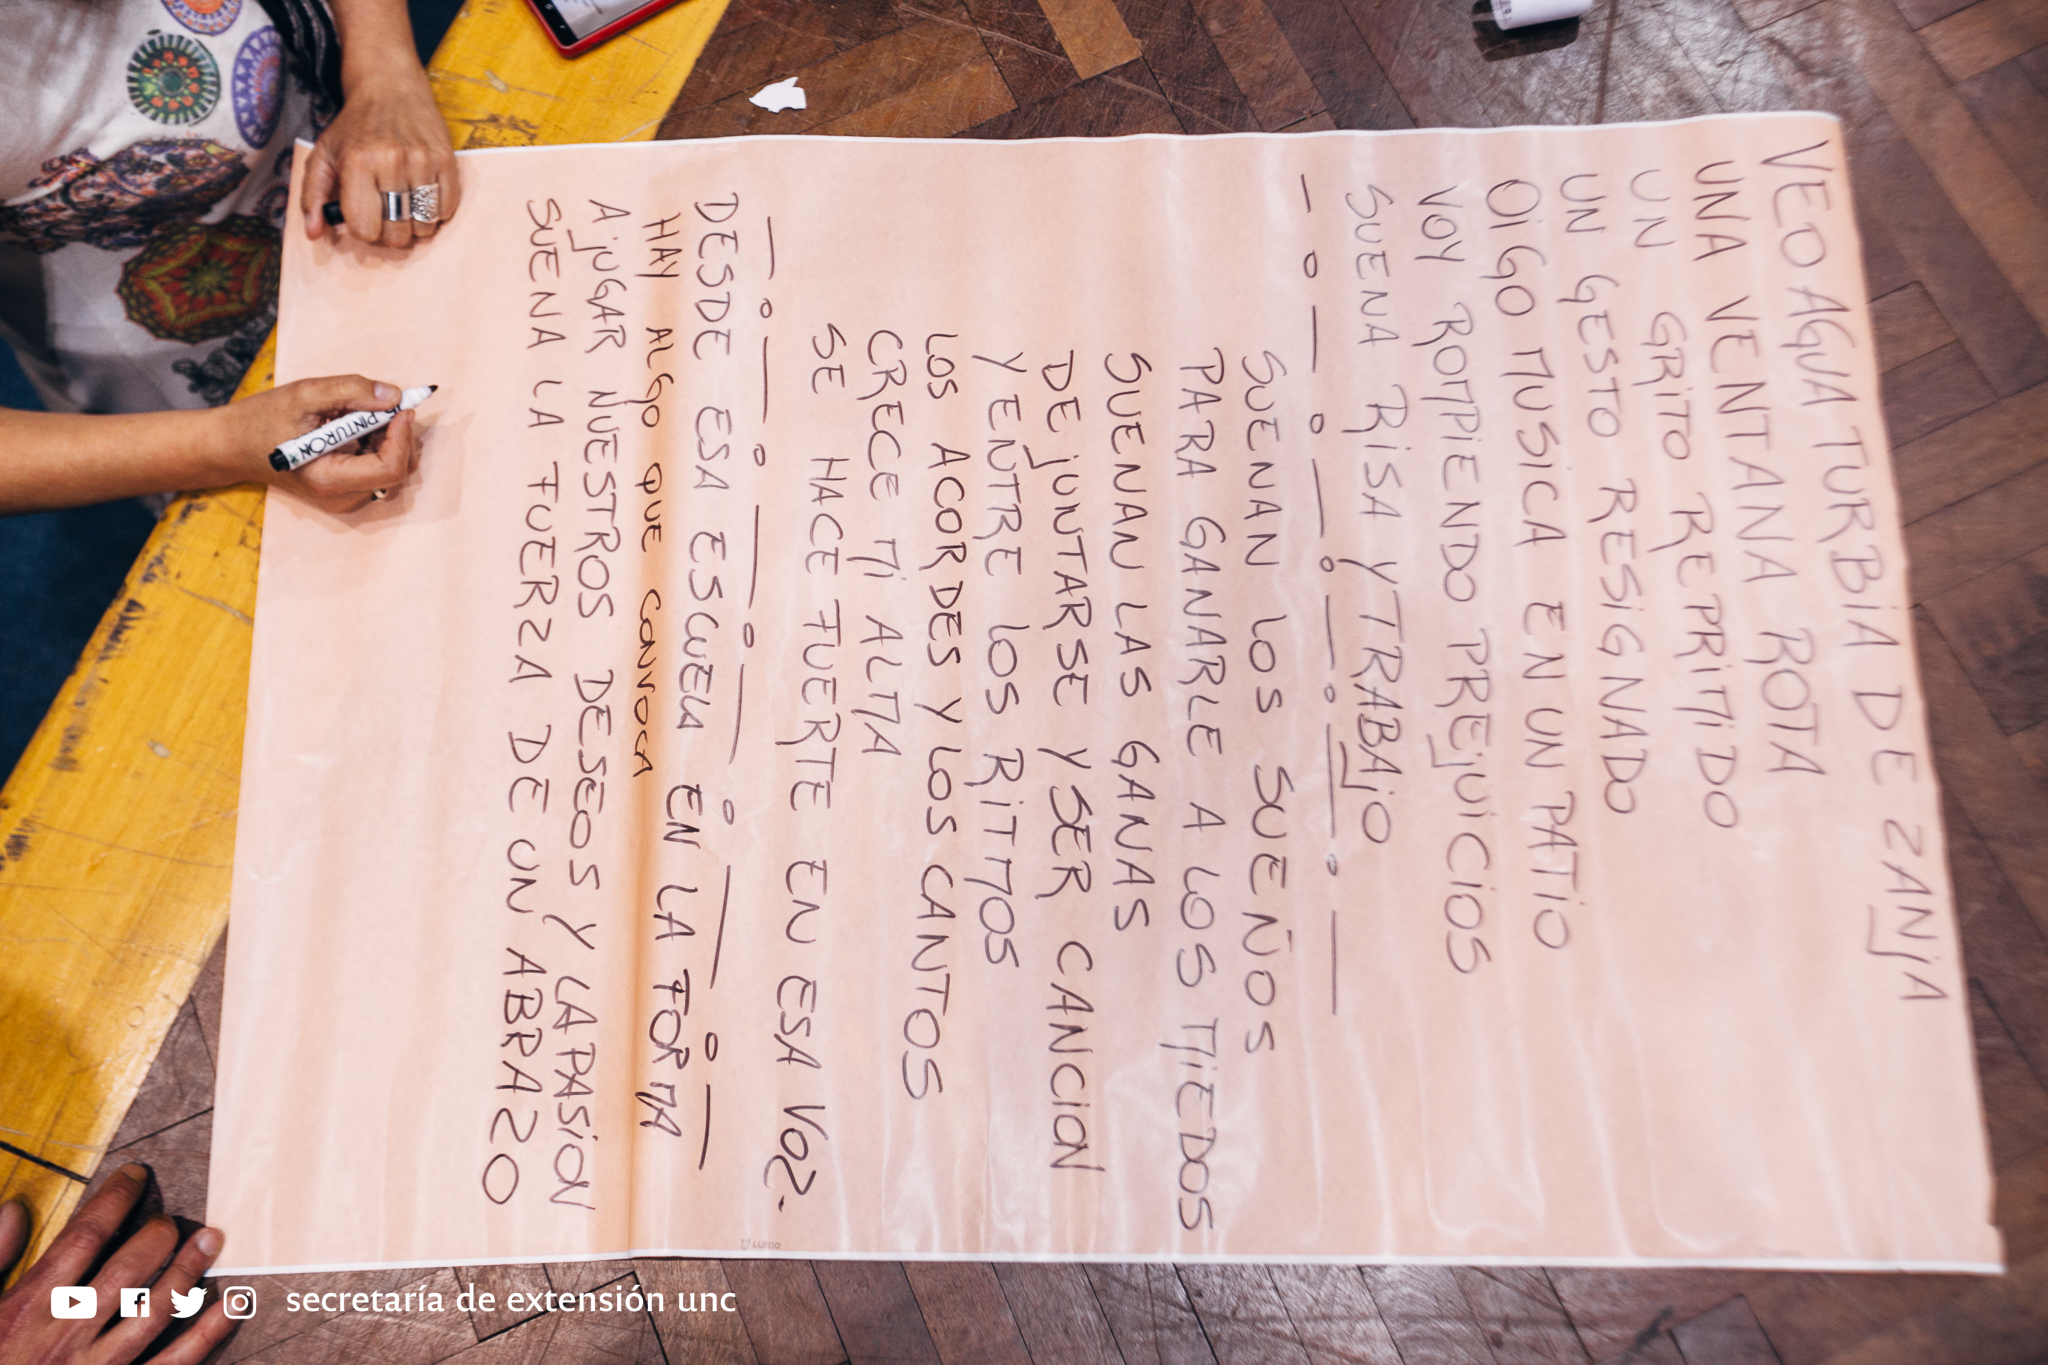 VEO AGUA TURBIA DE ZANJA
UNA VENTANA ROTA
UN GRITO REPRIMIDO
UN GESTO RESIGNADO
OIGO MUSICA EN UN PATIO
VOY ROMPIENDO PREJUICIOS
SUENA RISA Y TRABAJO
SUENAN LOS SUEÑOS
PARA GANARLE A LOS MIEDOS
SUENAN LAS GANAS
DE JUNTARSE Y SER CANCION
Y ENTRE LOS RITMOS
LOS ACORDES Y LOS CANTOS
CRECE MI ALMA
SE HACE FUERTE EN ESA VOZ.
DESDE ESA ESCUELA EN LA FORMA
HAY ALGO QUE CONVOCA
A JUGAR NUESTROS DESEOS Y LA PASION
SUENA LA FUERZA DE UN ABRAZO
PINTURÓN
Luma
secretaría de extensión unc